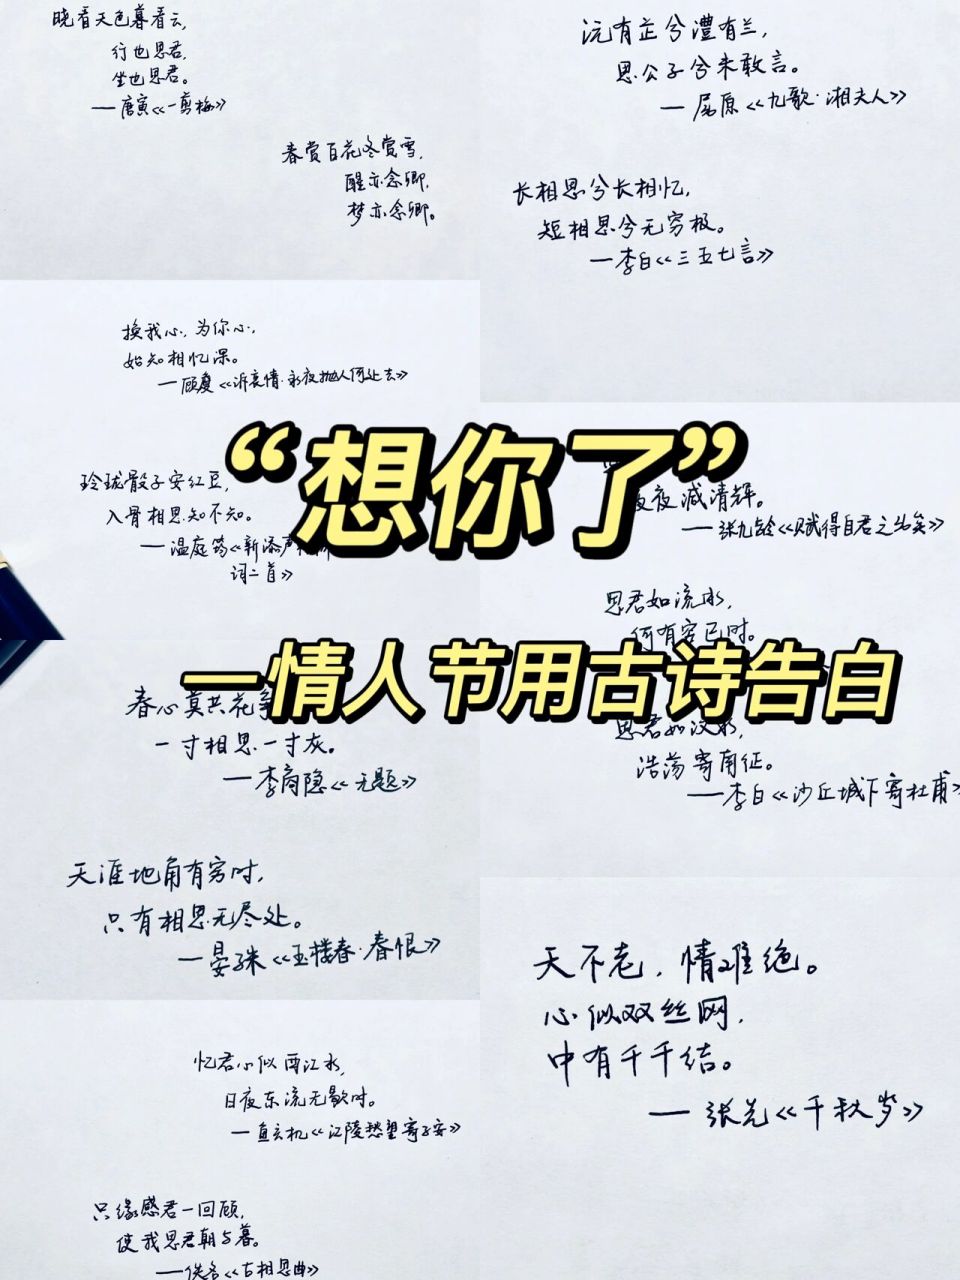 晓看天色暮看云，
行也思君，
坐也思君。
—唐寅《一剪梅》
春赏百花冬赏雪，
醒亦念卿，
梦亦念卿。
沅有芷兮澧有兰，
思公子兮未敢言。
—屈原《九歌·湘夫人》
长相思兮长相忆，
短相思兮无穷极。
—李白《三五七言》
换我心，为你心，
始知相忆深。
—顾夐《诉衷情·永夜抛人何处去》
玲珑骰子安红豆，
入骨相思知不知。
—温庭筠《新添声
词二首》
“想你了”
夜减清辉。
—张九龄《赋得自君之出矣》
思君如流水，
何有穷已时。
—情人节用古诗告白
春心莫共花争
一寸相思一寸灰。
—李商隐《无题》
思君如汶水，
浩荡寄南征。
—李白《沙丘城下寄杜甫》
天涯地角有穷时，
只有相思无尽处。
—晏殊《玉楼春·春恨》
天不老，情难绝。
心似双丝网，
中有千千结。
—张先《千秋岁》
忆君心似西江水，
日夜东流无歇时。
—鱼玄机《江陵愁望寄子安》
只缘感君一回顾，
使我思君朝与暮。
—佚名《古相思曲》